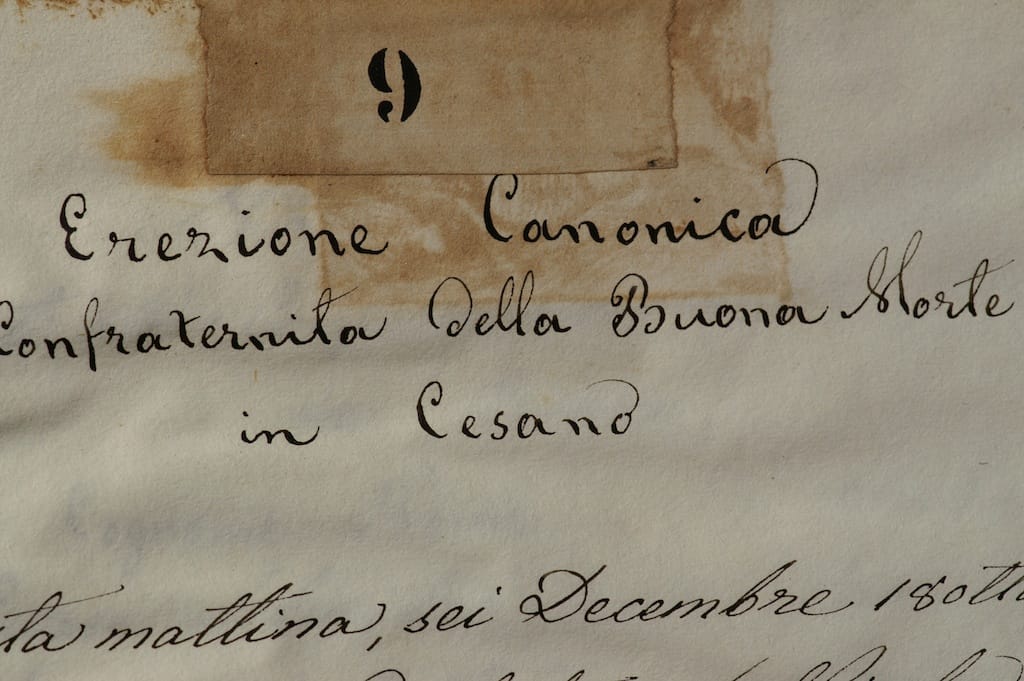 9
Erezione Canonica
Confraternita della Buona Morte
in Cesano
mattina, sei Decembre